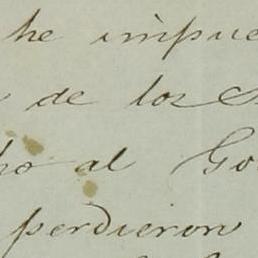 he impue
de los
ho al Go
perdieron